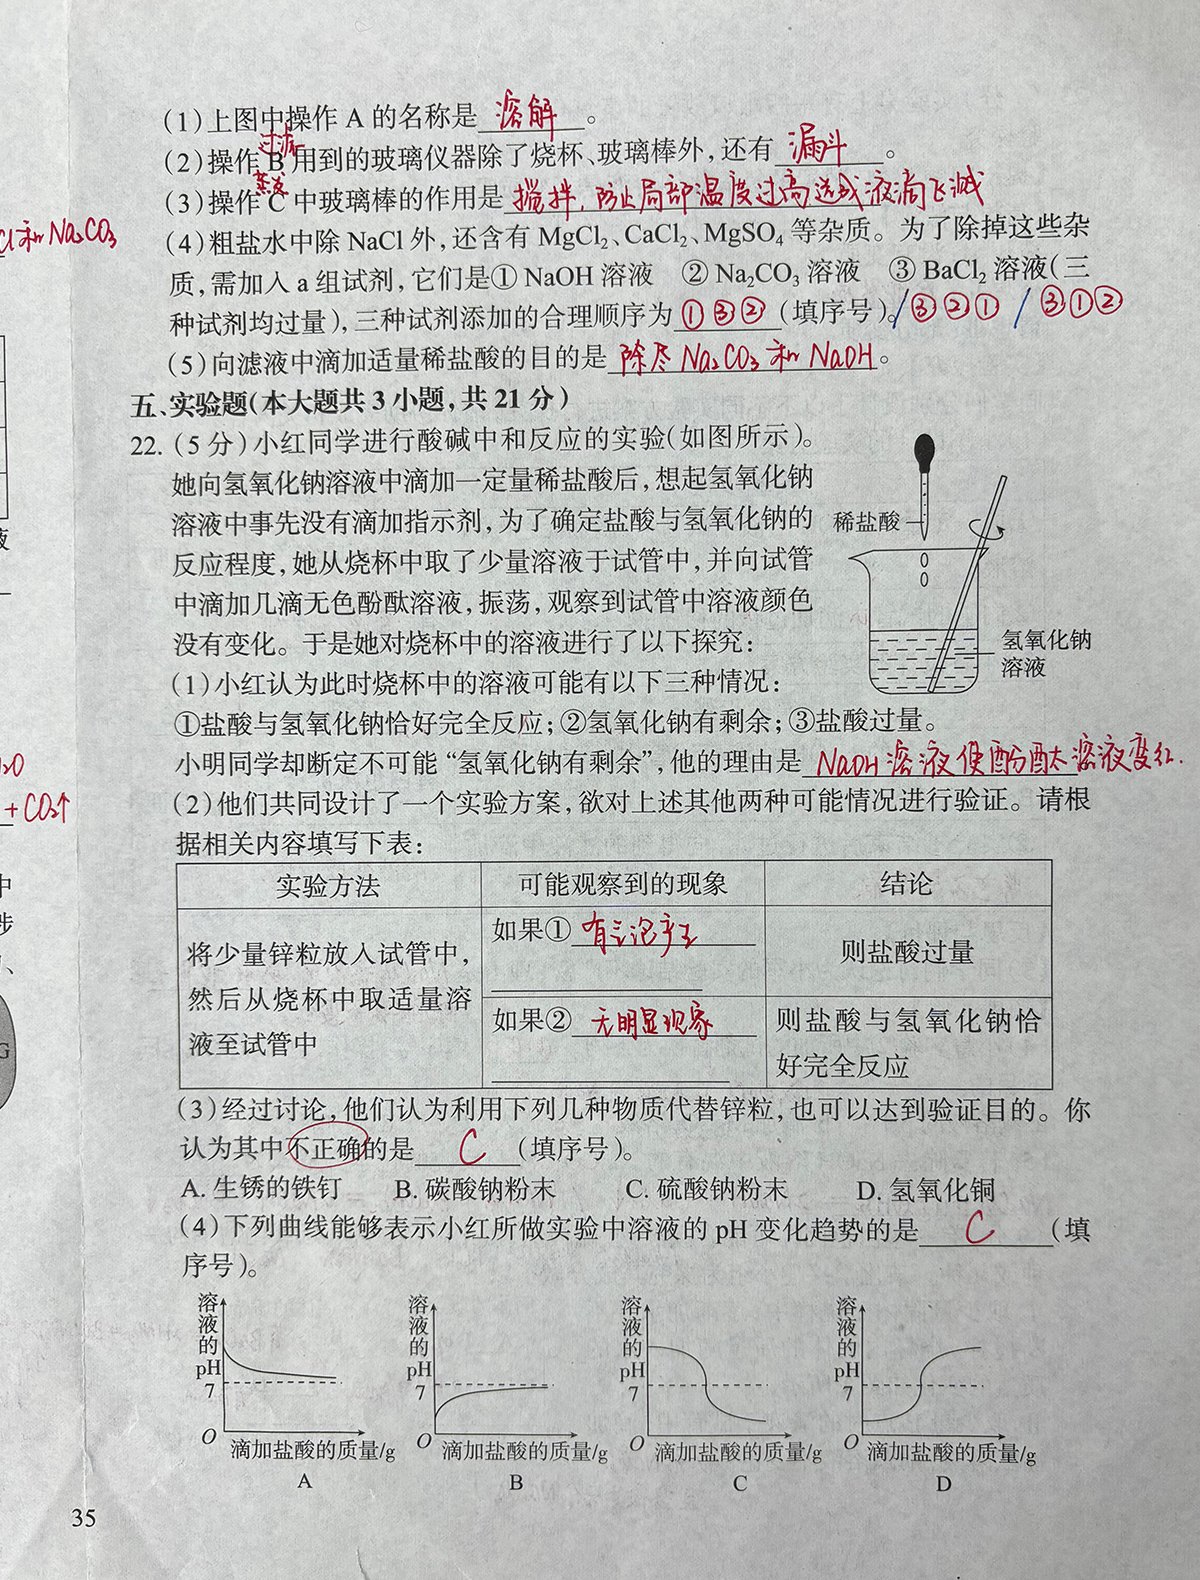 (1)上图中操作 A 的名称是 溶解 。
过滤
(2)操作 B 用到的玻璃仪器除了烧杯、玻璃棒外,还有 漏斗 。
蒸发
(3)操作 C 中玻璃棒的作用是 搅拌,防止局部温度过高造成液滴飞溅
Cl和Na₂CO₃
(4)粗盐水中除 NaCl 外,还含有 MgCl₂、CaCl₂、MgSO₄ 等杂质。为了除掉这些杂
质,需加入 a 组试剂,它们是① NaOH 溶液 ② Na₂CO₃ 溶液 ③ BaCl₂ 溶液(三
种试剂均过量),三种试剂添加的合理顺序为 ①③② (填序号)。/③②① / ③①②
(5)向滤液中滴加适量稀盐酸的目的是 除尽Na₂CO₃和NaOH 。
五、实验题(本大题共 3 小题,共 21 分)
22. (5 分)小红同学进行酸碱中和反应的实验(如图所示)。
她向氢氧化钠溶液中滴加一定量稀盐酸后,想起氢氧化钠
溶液中事先没有滴加指示剂,为了确定盐酸与氢氧化钠的
反应程度,她从烧杯中取了少量溶液于试管中,并向试管
中滴加几滴无色酚酞溶液,振荡,观察到试管中溶液颜色
没有变化。于是她对烧杯中的溶液进行了以下探究:
稀盐酸
氢氧化钠
溶液
(1)小红认为此时烧杯中的溶液可能有以下三种情况:
①盐酸与氢氧化钠恰好完全反应;②氢氧化钠有剩余;③盐酸过量。
小明同学却断定不可能“氢氧化钠有剩余”,他的理由是 NaOH溶液使酚酞溶液变红.
+CO₂↑
(2)他们共同设计了一个实验方案,欲对上述其他两种可能情况进行验证。请根
据相关内容填写下表:
实验方法 可能观察到的现象 结论
将少量锌粒放入试管中,
然后从烧杯中取适量溶
液至试管中
如果① 有气泡产生
则盐酸过量
如果② 无明显现象
则盐酸与氢氧化钠恰
好完全反应
(3)经过讨论,他们认为利用下列几种物质代替锌粒,也可以达到验证目的。你
认为其中不正确的是 C (填序号)。
A. 生锈的铁钉 B. 碳酸钠粉末 C. 硫酸钠粉末 D. 氢氧化铜
(4)下列曲线能够表示小红所做实验中溶液的 pH 变化趋势的是 C (填
序号)。
溶液的pH
7
O
滴加盐酸的质量/g
A
溶液的pH
7
O
滴加盐酸的质量/g
B
溶液的pH
7
O
滴加盐酸的质量/g
C
溶液的pH
7
O
滴加盐酸的质量/g
D
35